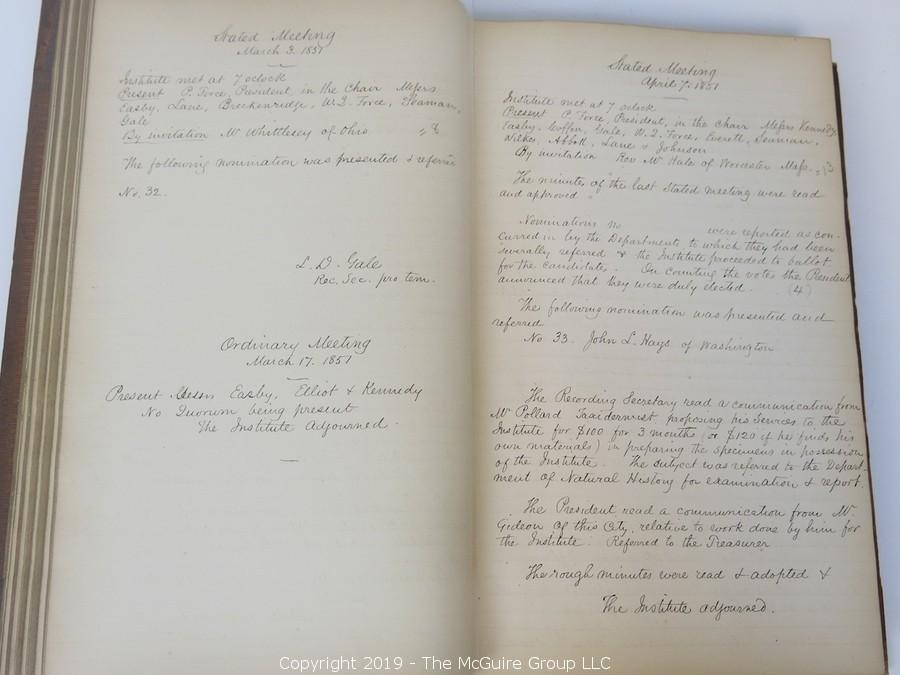 Stated Meeting
March 3. 1851
Institute met at 7 oclock
Present P. Force, President, in the chair Messrs
Easby, Lane, Breckenridge, W.Q. Force, Seaman,
Gale
By invitation Mr Whittlesey of Ohio 8
The following nomination was presented & referred
No. 32.
L. D. Gale
Rec. Sec. pro tem.
Ordinary Meeting
March 17. 1851
Present Messrs Easby, Elliot & Kennedy
No Quorum being present
The Institute Adjourned.
Stated Meeting
April 7. 1851
Institute met at 7 oclock
Present P. Force, President, in the chair Messrs Kennedy
Easby, Coffin, Gale, W. Q. Force, Everett, Seaman,
Wilkes, Abbott, Lane & Johnson
By invitation Rev Mr Hale of Worcester Mass. 13
The minutes of the last Stated meeting were read
and approved
Nominations no were reported as con-
curred in by the Departments to which they had been
severally referred & the Institute proceeded to ballot
for the candidates. On counting the votes the President
announced that they were duly elected. (4)
The following nomination was presented and
referred
No 33. John L. Hays of Washington
The Recording Secretary read a communication from
Mr Pollard Taxidermist proposing his services to the
Institute for $100 for 3 months (or $120 if he finds his
own materials) in preparing the specimens in possession
of the Institute. The subject was referred to the Depart-
ment of Natural History for examination & report.
The President read a communication from Mr
Gideon of this City, relative to work done by him for
the Institute. Referred to the Treasurer
The rough minutes were read & adopted &
The Institute adjourned.
Copyright 2019 - The McGuire Group LLC